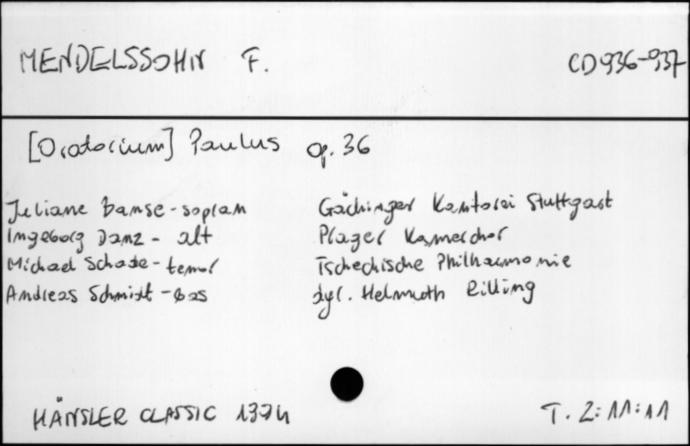 MENDELSSOHN F. CD 936-937
[Oratorium] Paulus op. 36
Juliane Banse - sopran Gächinger Kantorei Stuttgart
Ingeborg Danz - alt Prager Kammerchor
Michael Schade - tenor Tschechische Philharmonie
Andreas Schmidt - bas dyr. Helmuth Rilling
HÄNSLER CLASSIC T. 2:11:11